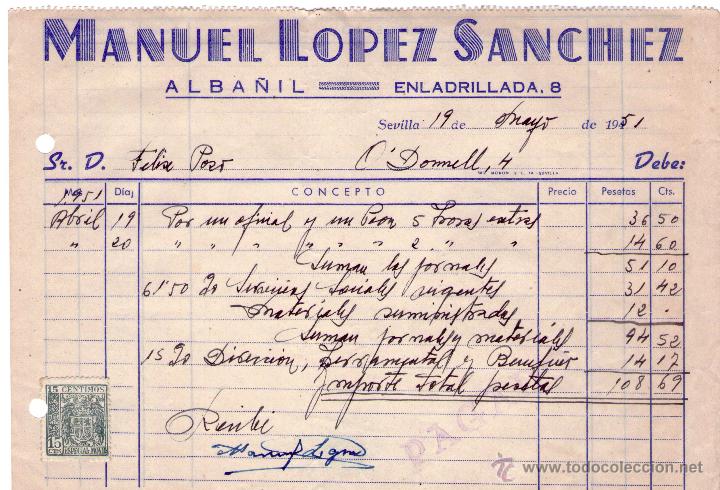 MANUEL LOPEZ SANCHEZ
ALBAÑIL ENLADRILLADA, 8
Sevilla 19 de Mayo de 1951
Sr. D. Felix Pozo O'Donnell, 4 Debe:
SEVILLA
1951 Día CONCEPTO Precio Pesetas Cts.
Abril 19 Por un oficial y un Peon 5 horas extras 36 50
" 20 " " " " " " 2 " " 14 60
Suman los jornales 51 10
61'50 % Servicios Sociales vigentes 31 42
materiales suministrados 12 .
Suman jornales y materiales 94 52
15 % Direccion, herramental y Benefici 14 17
Importe total pesetas 108 69
15 CENTIMOS
Recibi
15
ESPECIAL MOVIL
PAG
www.todocoleccion.net